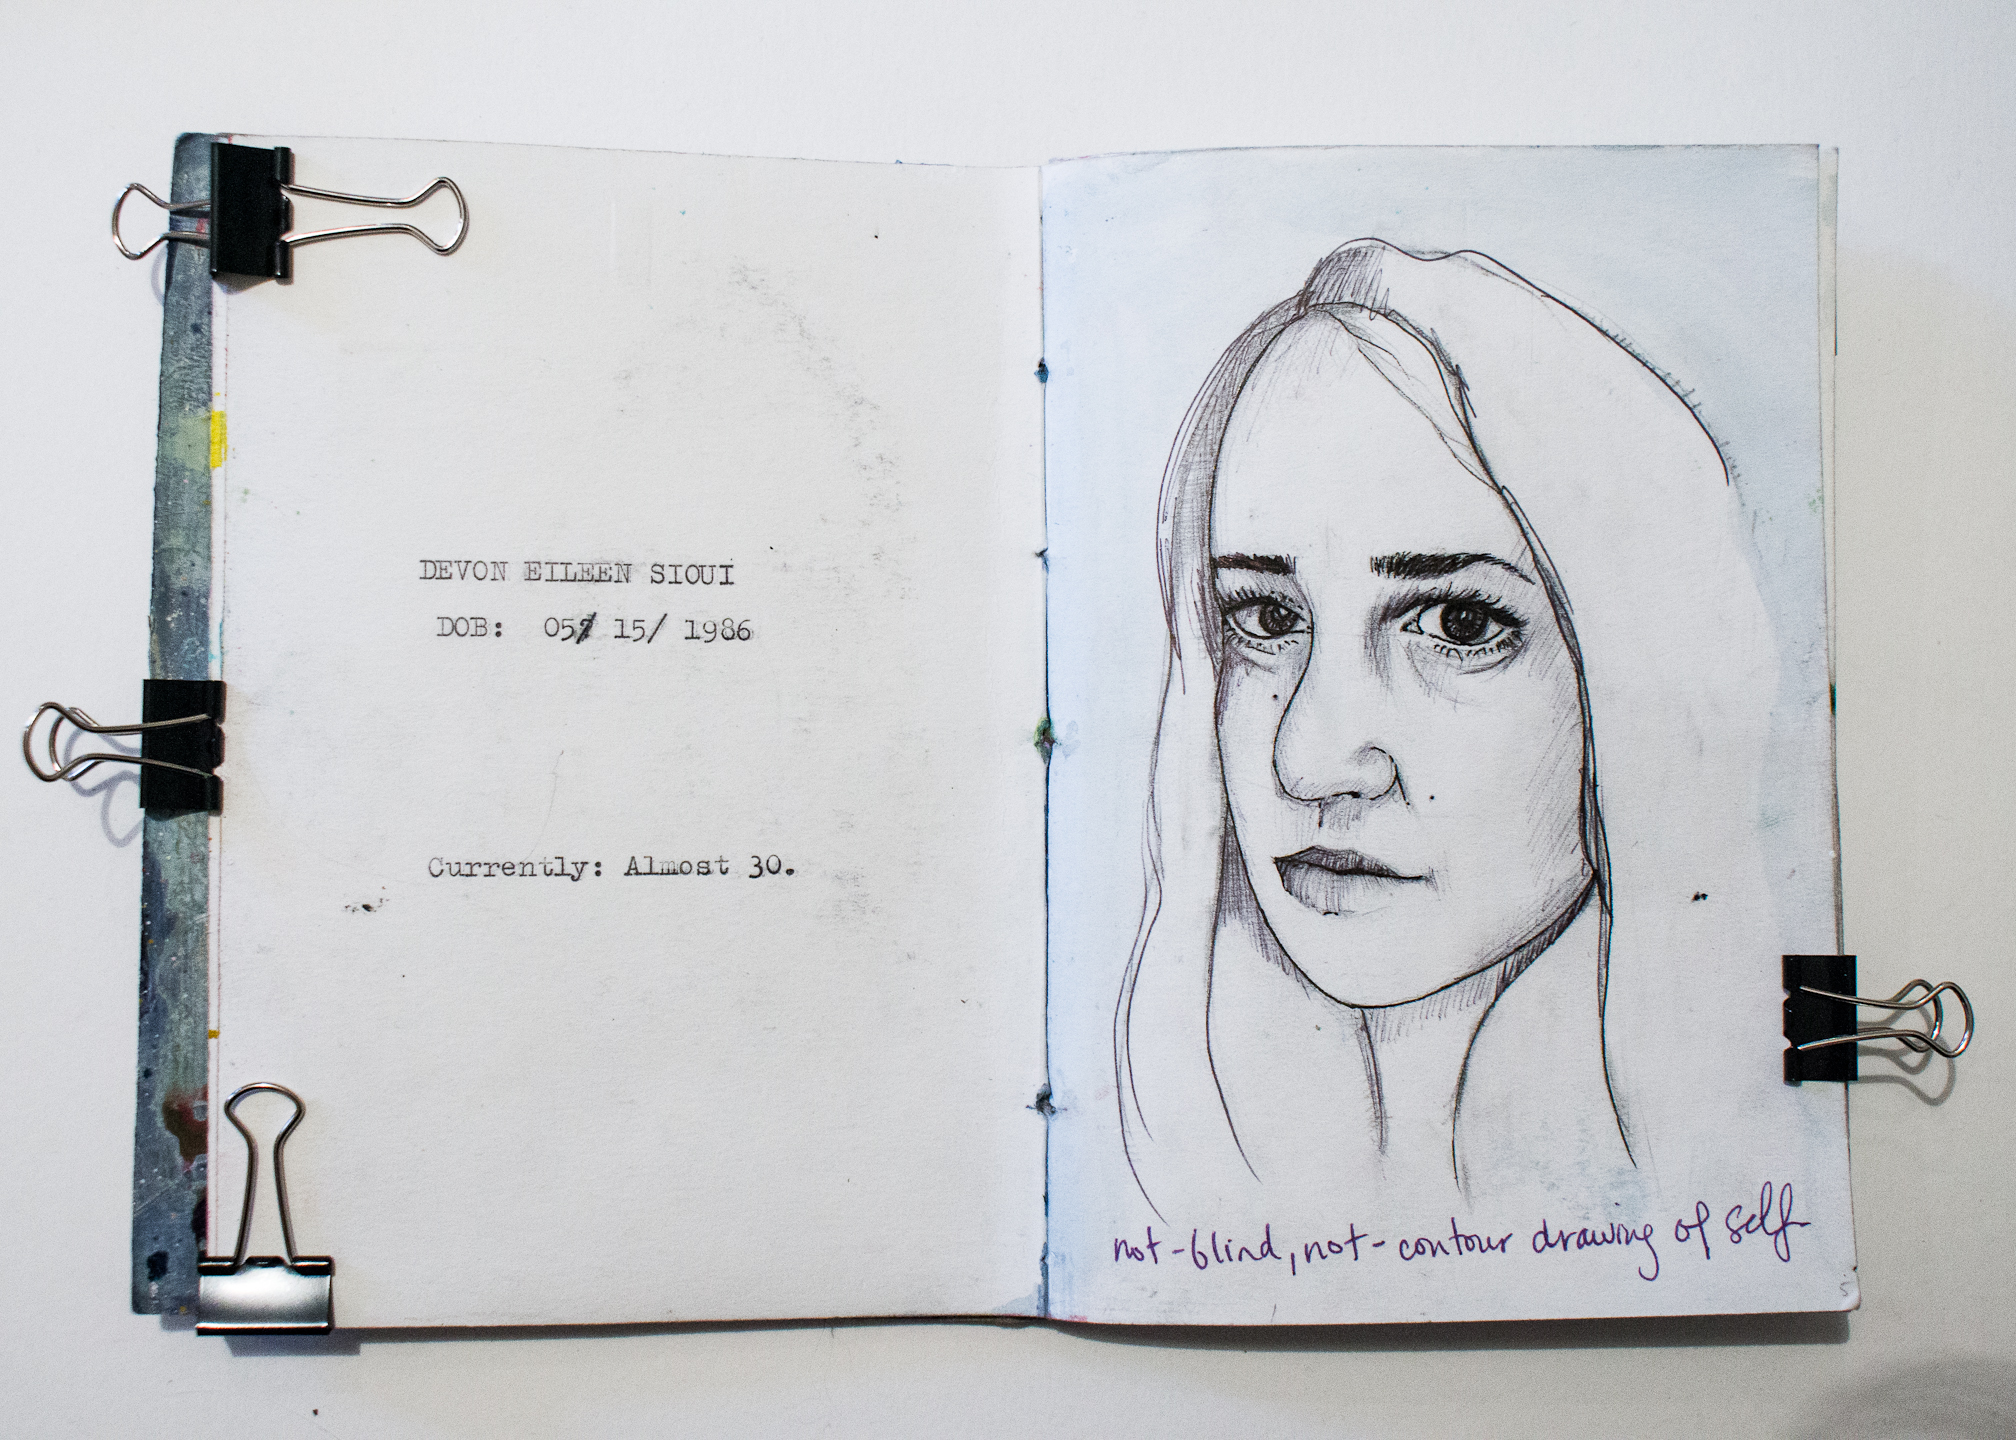 DEVON EILEEN SIOUI
DOB: 05/ 15/ 1986
Currently: Almost 30.
not-blind, not-contour drawing of self
5